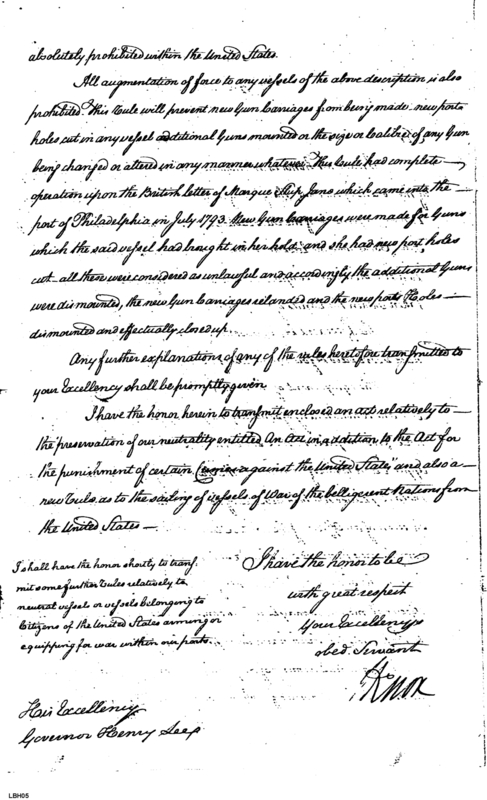 absolutely prohibited within the United States.
All augmentation of force to any vessels of the above description is also
prohibited. This Rule will prevent new Gun Carriages from being made new port
holes cut in any vessel additional Guns mounted or the size or Calibre of any Gun
being changed or altered in any manner whatever. This rule had complete
operation upon the British letter of Marque Ship Jane which came into the
port of Philadelphia in July 1793. New Gun Carriages were made for Guns
which the said vessel had brought in her hold and she had new port holes
cut all these were considered as unlawful and accordingly the additional Guns
were dismounted, the new Gun Carriages relanded and the new port Holes
dismounted and effectually closed up.
Any further explanations of any of the rules heretofore transmitted to
your Excellency shall be promptly given
I have the honor herein to transmit enclosed an act relatively to
the preservation of our neutrality entitled "An Act in addition to the Act for
the punishment of certain Crimes against the United States" and also a
new Rule as to the sailing of vessels of War of the belligerent Nations from
the United States
I shall have the honor shortly to trans
mit some further Rules relatively to
neutral vessels or vessels belonging to
Citizens of the United States arming or
equipping for war within our ports
I have the honor to be
with great respect
Your Excellencys
obed. Servant
HKnox
His Excellency
Governor Henry Lee
LBH05